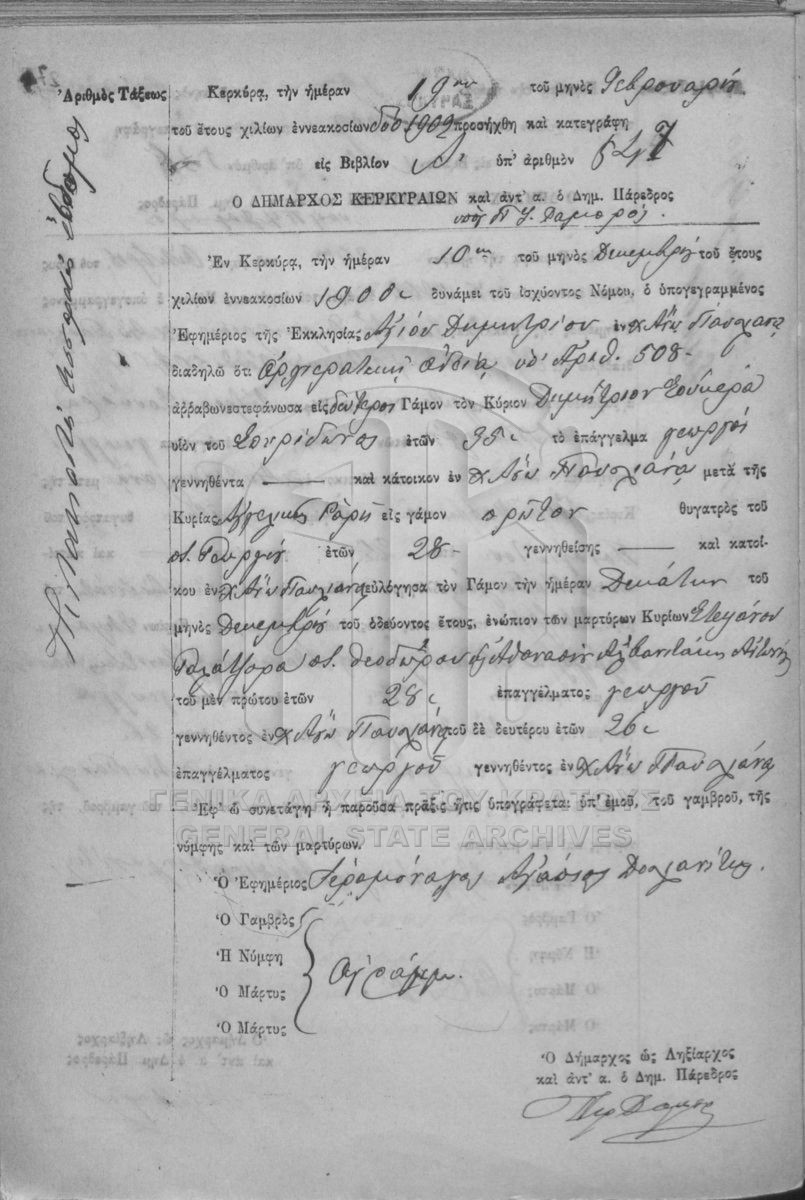 Ἀριθμὸς Τάξεως
Κερκύρᾳ, τὴν ἡμέραν 19ην τοῦ μηνὸς Φεβρουαρίου
τοῦ ἔτους χιλίων ἐννεακοσίων δύο 1902 προσήχθη καὶ κατεγράφη
εἰς Βιβλίον ὑπ' ἀριθμὸν 547
Ο ΔΗΜΑΡΧΟΣ ΚΕΡΚΥΡΑΙΩΝ καὶ ἀντ' α. ὁ Δημ. Πάρεδρος
Ἐν Κερκύρᾳ, τὴν ἡμέραν 10ην τοῦ μηνὸς Δεκεμβρίου τοῦ ἔτους
χιλίων ἐννεακοσίων 1900 δυνάμει τοῦ ἰσχύοντος Νόμου, ὁ ὑπογεγραμμένος
Ἐφημέριος τῆς Ἐκκλησίας Ἁγίου Δημητρίου ἐν χ. Ἄνω
διαδηλῶ ὅτι Ἀρχιερατικῇ ἀδείᾳ ὑπ' Ἀριθ. 508
ἀρραβωνεστεφάνωσα εἰς δεύτερον Γάμον τὸν Κύριον Δημήτριον
υἱὸν τοῦ Σπυρίδωνος ἐτῶν 35 τὸ ἐπάγγελμα γεωργὸν
γεννηθέντα — καὶ κάτοικον ἐν χ. Ἄνω μετὰ τῆς
Κυρίας Ἀγγελικῆς εἰς γάμον πρῶτον θυγατρὸς τοῦ
π. Γεωργίου ἐτῶν 28 γεννηθείσης — καὶ κατοί-
κου ἐν χ. Ἄνω εὐλόγησα τὸν Γάμον τὴν ἡμέραν Δεκάτην τοῦ
μηνὸς Δεκεμβρίου τοῦ ὁδεύοντος ἔτους, ἐνώπιον τῶν μαρτύρων Κυρίων Στεφάνου
π. Θεοδώρου Ἀθανασίου
τοῦ μὲν πρώτου ἐτῶν 28 ἐπαγγέλματος γεωργοῦ
γεννηθέντος ἐν χ. Ἄνω τοῦ δὲ δευτέρου ἐτῶν 26
ἐπαγγέλματος γεωργοῦ γεννηθέντος ἐν χ. Ἄνω
Ἐφ' ᾧ συνετάγη ἡ παροῦσα πρᾶξις ἥτις ὑπογράφεται ὑπ' ἐμοῦ, τοῦ γαμβροῦ, τῆς
ΓΕΝΙΚΑ ΑΡΧΕΙΑ ΤΟΥ ΚΡΑΤΟΥΣ
GENERAL STATE ARCHIVES
νύμφης καὶ τῶν μαρτύρων.
Ὁ Ἐφημέριος Ἱερομόναχος
Ὁ Γαμβρὸς
Ἡ Νύμφη
Ὁ Μάρτυς Ἀγράμμ.
Ὁ Μάρτυς
Ὁ Δήμαρχος ὡς Ληξίαρχος
καὶ ἀντ' α. ὁ Δημ. Πάρεδρος